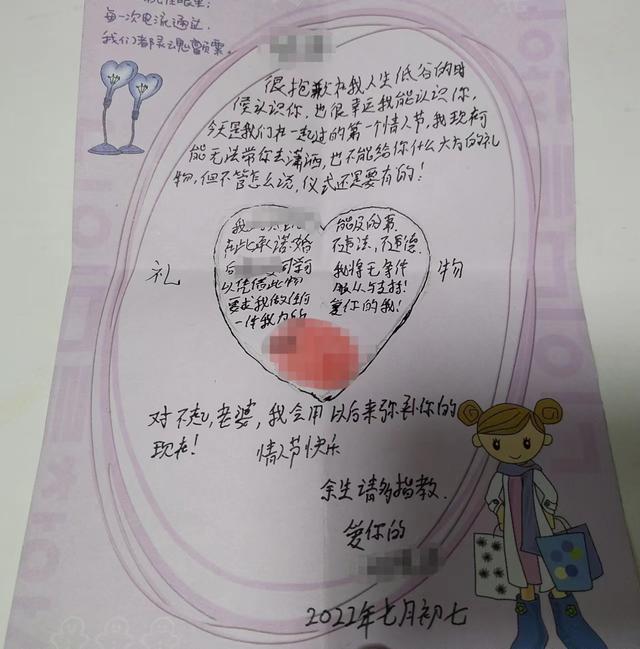 每一次电流通过,
我们都灵魂颤栗。
很抱歉在我人生低谷的时
侯认识你,也很幸运我能认识你,
今天是我们在一起过的第一个情人节,我现在可
能无法带你去潇洒,也不能给你什么太大的礼
物,但不管怎么说,仪式还是要有的!
礼
物
我
在此承诺婚
后 同学可
以凭借此物
要求我做任何
一件我力所
能及的事.
不违法,不道德
我将无条件
服从与支持!
爱你的我!
对不起,老婆,我会用以后来弥补你的
现在!
情人节快乐
余生请多指教.
爱你的
2022年七月初七